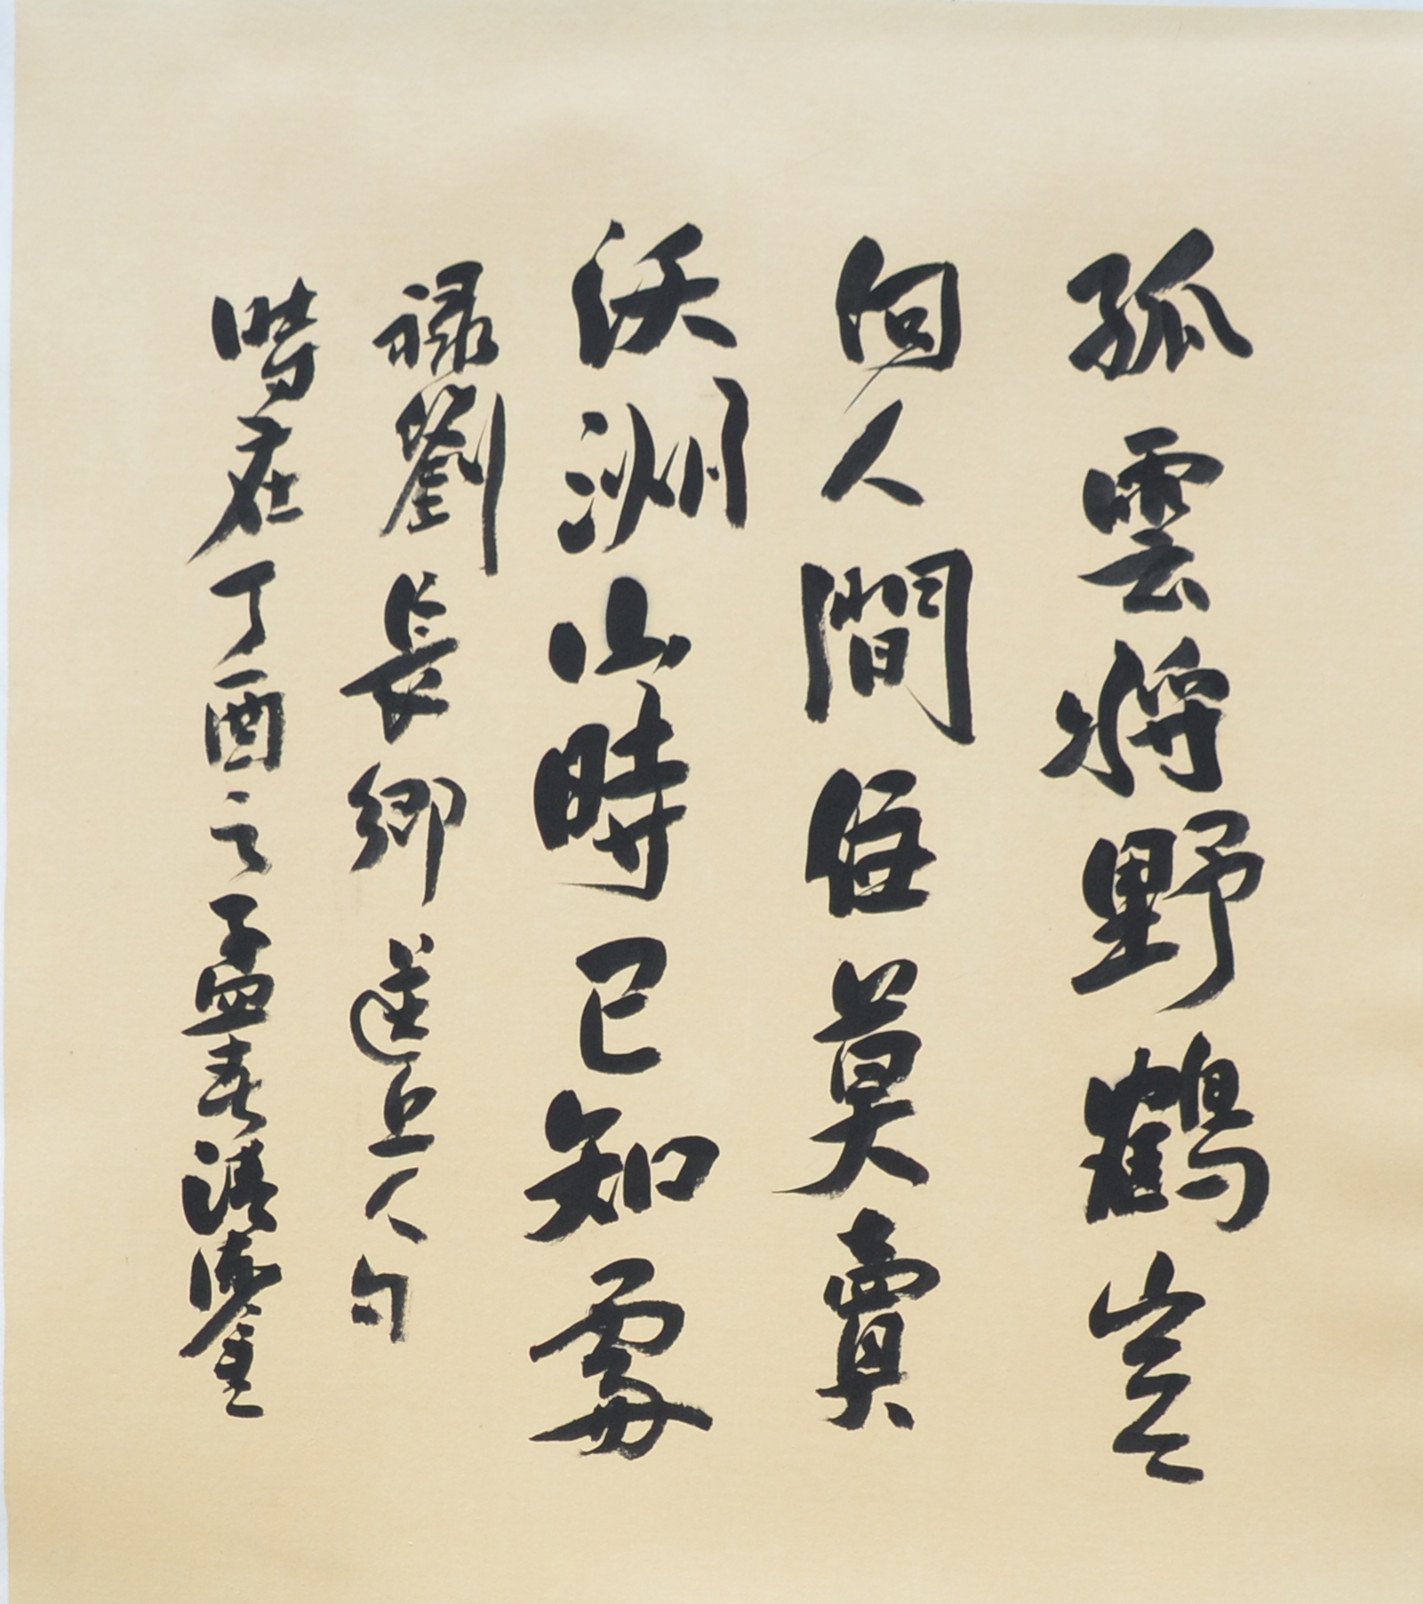 孤雲將野鶴豈
向人間住莫賣
沃洲山時已知處
禄劉長卿送上人句
時在丁酉之孟春